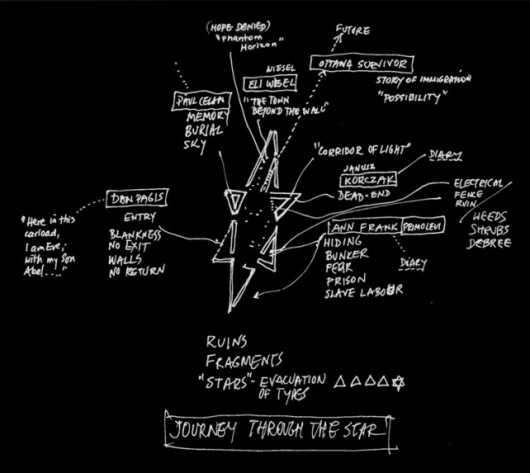 (HOPE DENIED)
"Phantom
Horizon"
FUTURE
OTTAWA SURVIVOR
STORY OF IMMIGRATION
"POSSIBILITY"
WIESEL
"THE TOWN
BEYOND THE WALL"
PAUL CELAN
MEMORY
BURIAL
SKY
"CORRIDOR OF LIGHT"
JANUSZ
KORCZAK
DIARY
DEAD-END
ELECTRICAL
FENCE
RUIN
WEEDS
SHRUBS
DEBREE
DAN PAGIS
ENTRY
BLANKNESS
NO EXIT
WALLS
NO RETURN
"Here in this
carload,
I am Eve,
with my son
Abel...."
ANN FRANK
HIDING
BUNKER
FEAR
PRISON
SLAVE LABOUR
DIARY
RUINS
FRAGMENTS
"STARS" - EVALUATION
OF TYPES
JOURNEY THROUGH THE STAR